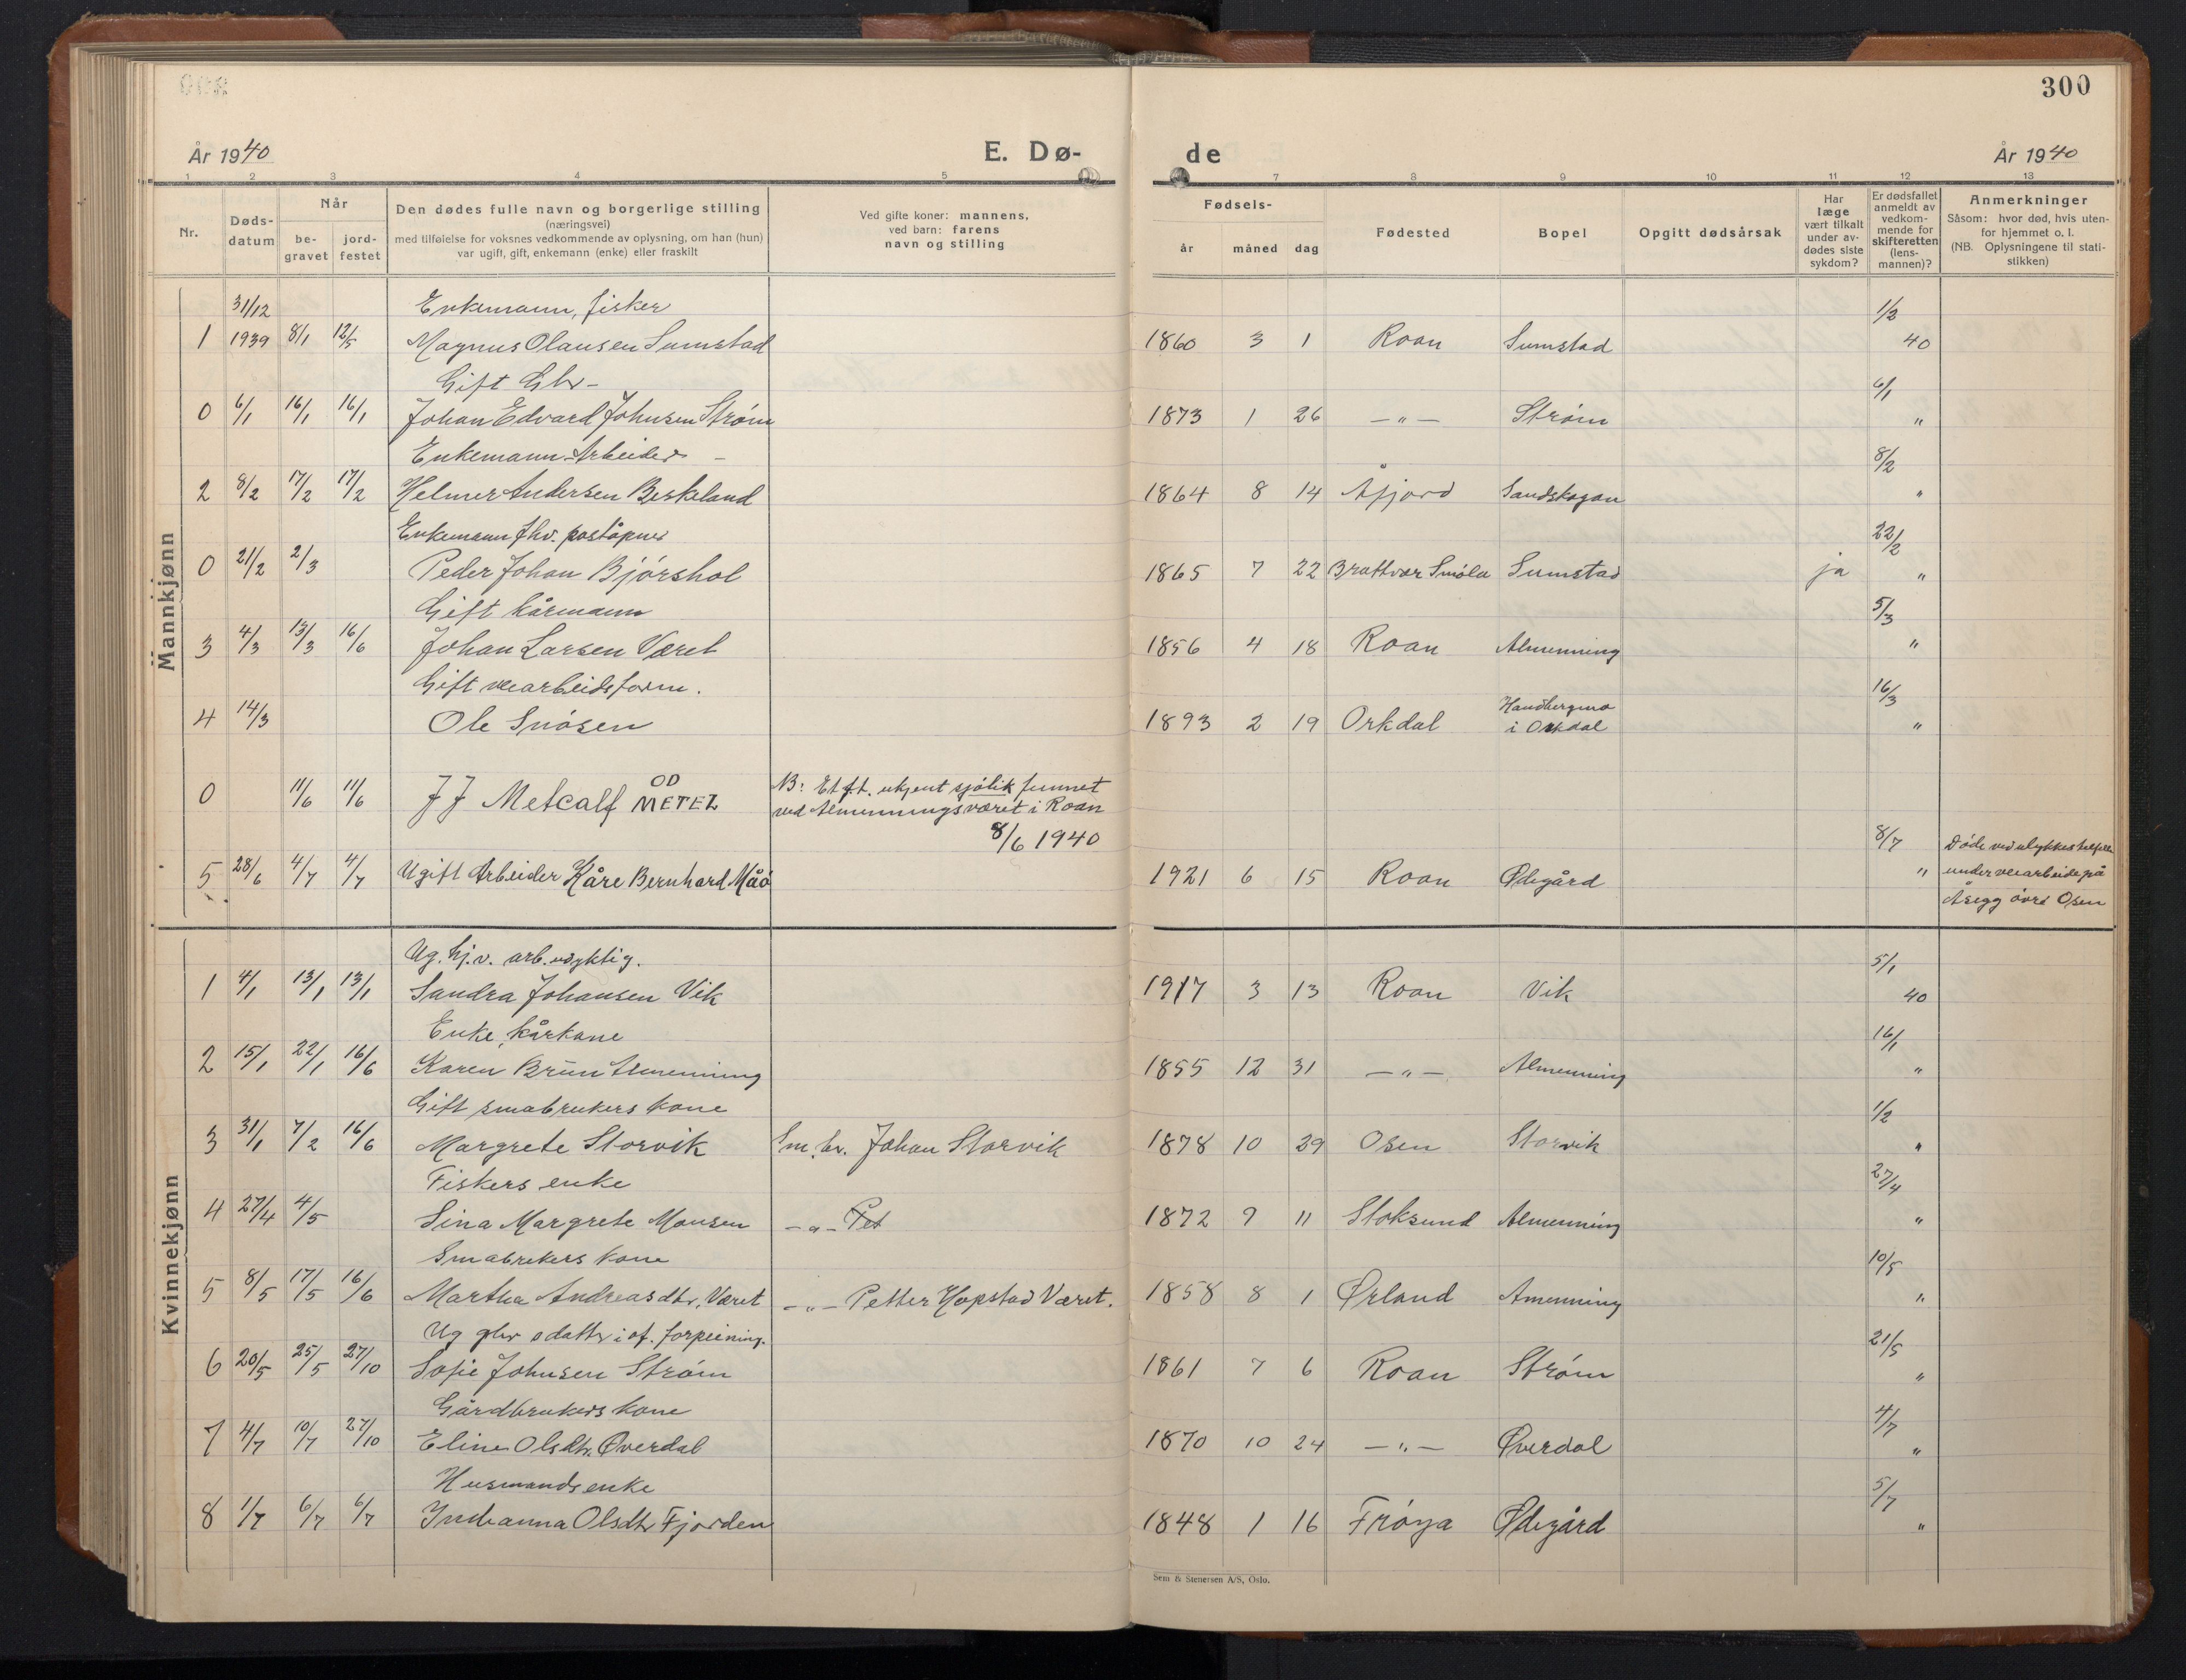 300
År 1940
E. Dø-
de
År 1940
1 2 3 4 5
7 8 9 10 11 12 13
Nr.
Døds-
datum
Når
be-
gravet
jord-
festet
Den dødes fulle navn og borgerlige stilling
(næringsvei)
med tilføielse for voksnes vedkommende av oplysning, om han (hun)
var ugift, gift, enkemann (enke) eller fraskilt
Ved gifte koner: mannens,
ved barn: farens
navn og stilling
Fødsels-
år måned dag
Fødested
Bopel
Opgitt dødsårsak
Har
læge
vært tilkalt
under av-
dødes siste
sykdom?
Er dødsfallet
anmeldt av
vedkom-
mende for
skifteretten
(lens-
mannen)?
Anmerkninger
Såsom: hvor død, hvis uten-
for hjemmet o. l.
(NB. Oplysningene til stati-
stikken)
Mannkjønn
31/12 Enkemann, fisker 1/2
1 1939 8/1 12/5 Magnus Olausen Sumstad 1860 3 1 Roan Sumstad 40
Gift Gbr- 6/1
0 6/1 16/1 16/1 Johan Edvard Johnsen Strøm 1873 1 26 -"- Strøm "
Enkemann-Arbeider - 8/2
2 8/2 17/2 17/2 Helmer Andersen Beskeland 1864 8 14 Åfjord Sandskogan "
Enkemann fhv. poståpner 22/2
0 21/2 2/3 Peder Johan Bjørshol 1865 7 22 Brattvær Smøla Sumstad ja "
Gift kårmann 5/3
3 4/3 13/3 16/6 Johan Larsen Været 1856 4 18 Roan Almenning "
Gift veiarbeidsform. 16/3
4 14/3 Ole Snøsen 1893 2 19 Orkdal i Orkdal "
0 11/6 11/6 J J Metcalf OD METEZ
NB: Et f.t. ukjent sjølik funnet
ved Almenningsværet i Roan
8/6 1940
5 28/6 4/7 4/7 Ugift Arbeider Kåre Bernhard Måø 1921 6 15 Roan Ødegård 8/7 "
Døde ved ulykkestilfelle
under veiarbeide på
Åsegg øvre Osen
Kvinnekjønn
Ug. hj.v. arb.udyktig. 5/1
1 4/1 13/1 13/1 Sandra Johansen Vik 1917 3 13 Roan Vik 40
Enke, kårkone 16/1
2 15/1 22/1 16/6 Karen Brun Almenning 1855 12 31 -"- Almenning "
Gift småbrukers kone 1/2
3 31/1 7/2 16/6 Margrete Storvik Sm.br. Johan Storvik 1878 10 29 Osen Storvik "
Fiskers enke 27/4
4 27/4 4/5 Sina Margrete Monsen -"- Pet 1872 9 11 Stoksund Almenning "
Småbrekers kone 10/5
5 8/5 17/5 16/6 Martha Andreasdtr. Været -"- Petter Hopstad Været. 1858 8 1 Ørland Amenning "
Ug gbr sdattr i of. forpleining. 21/5
6 20/5 25/5 27/10 Sofie Johnsen Strøm 1861 7 6 Roan Strøm "
Gårdbrukers kone 4/7
7 4/7 10/7 27/10 Eline Olsdtr. Øverdal 1870 10 24 -"- Øverdal "
Husmands enke 5/7
8 1/7 6/7 6/7 Indianna Olsdtr Fjorden 1848 1 16 Frøya Ødegård "
Sem & Stenersen A/S, Oslo.